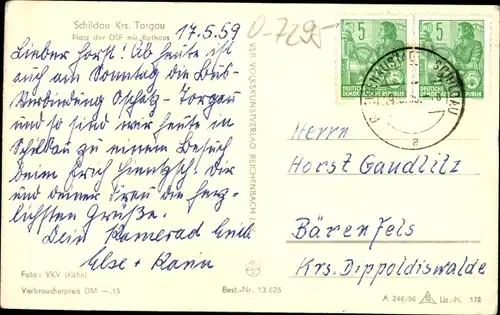 Schildau Krs. Torgau
Platz der DSF mit Rathaus
17.5.59
Lieber Horst! Ab heute ist
auch am Sonntag die Bus-
Verbindung Oschatz-Torgau
und so sind wir heute in
Schildau zu einem Besuch
beim Erich Hientzsch! Dir
und deiner Siren die herz-
lichsten Grüße.
Dein Kamerad Erich
Else + Karin
Foto: VKV (Kühn)
Verbraucherpreis DM -.15
Best.-Nr. 13 626
VEB VOLKSKUNSTVERLAG REICHENBACH
0-7290-
5
DEUTSCHE
DEMOKRATISCHE REPUBLIK
5
DEUTSCHE
DEMOKRATISCHE REPUBLIK
SCHILDAU
a
Herrn
Horst Gaudlitz
Bärenfels
Krs. Dippoldiswalde
A 246/56
Liz.-N. 172